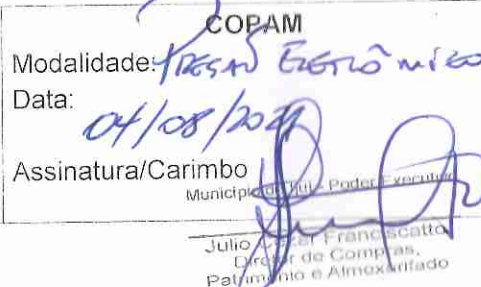 COPAM
Modalidade: Pregão Eletrônico
Data:
04/08/2021
Assinatura/Carimbo
Município - Poder Executivo
Julio Franciscatto
Diretor de Compras,
Patrimônio e Almoxarifado